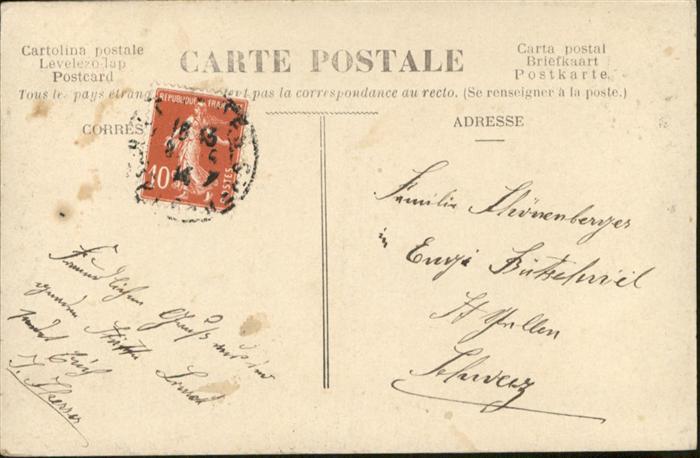 Cartolina postale
Levelezo-lap
Postcard
CARTE POSTALE
Carta postal
Briefkaart
Postkarte
Tous les pays étran pas la correspondance au recto. (Se renseigner à la poste.)
CORRES
ADRESSE
REPUBLIQUE FRAN
10
POSTES
Familie Schönenberger
in Engi Bütschwil
St Gallen
Schweiz
Freundlichen Gruß
sendet Euch